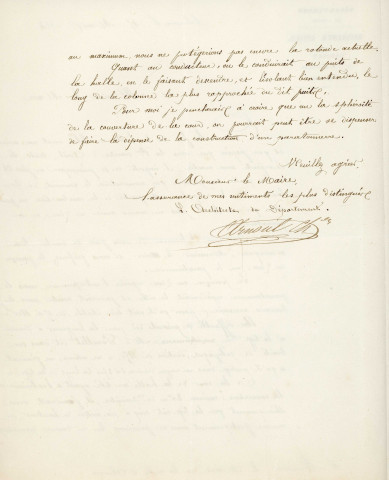 au maximum nous ne protégerions pas encore la rotonde actuelle.
Quant au conducteur, on le conduirait au puits de
la halle, en le faisant descendre, et l'isolant bien entendu, le
long de la colonne la plus rapprochée du dit puits.
Pour moi je pencherais à croire que vu la sphéricité
de la couverture de la cour, on pourrait peut être se dispenser
de faire la dépense de la construction d'un paratonnerre.
Veuillez agréer
Monsieur le Maire,
l'assurance de mes sentiments les plus distingués
L'Architecte du Département.